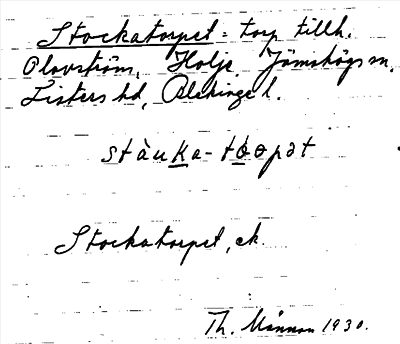 Stockatorpet = torp tillh.
Olovström, Holje, Jämshögs sn,
Listers hd, Blekinge l.
stàuka-toopət
Stockatorpet, ek.
Th. Månsson 1930.